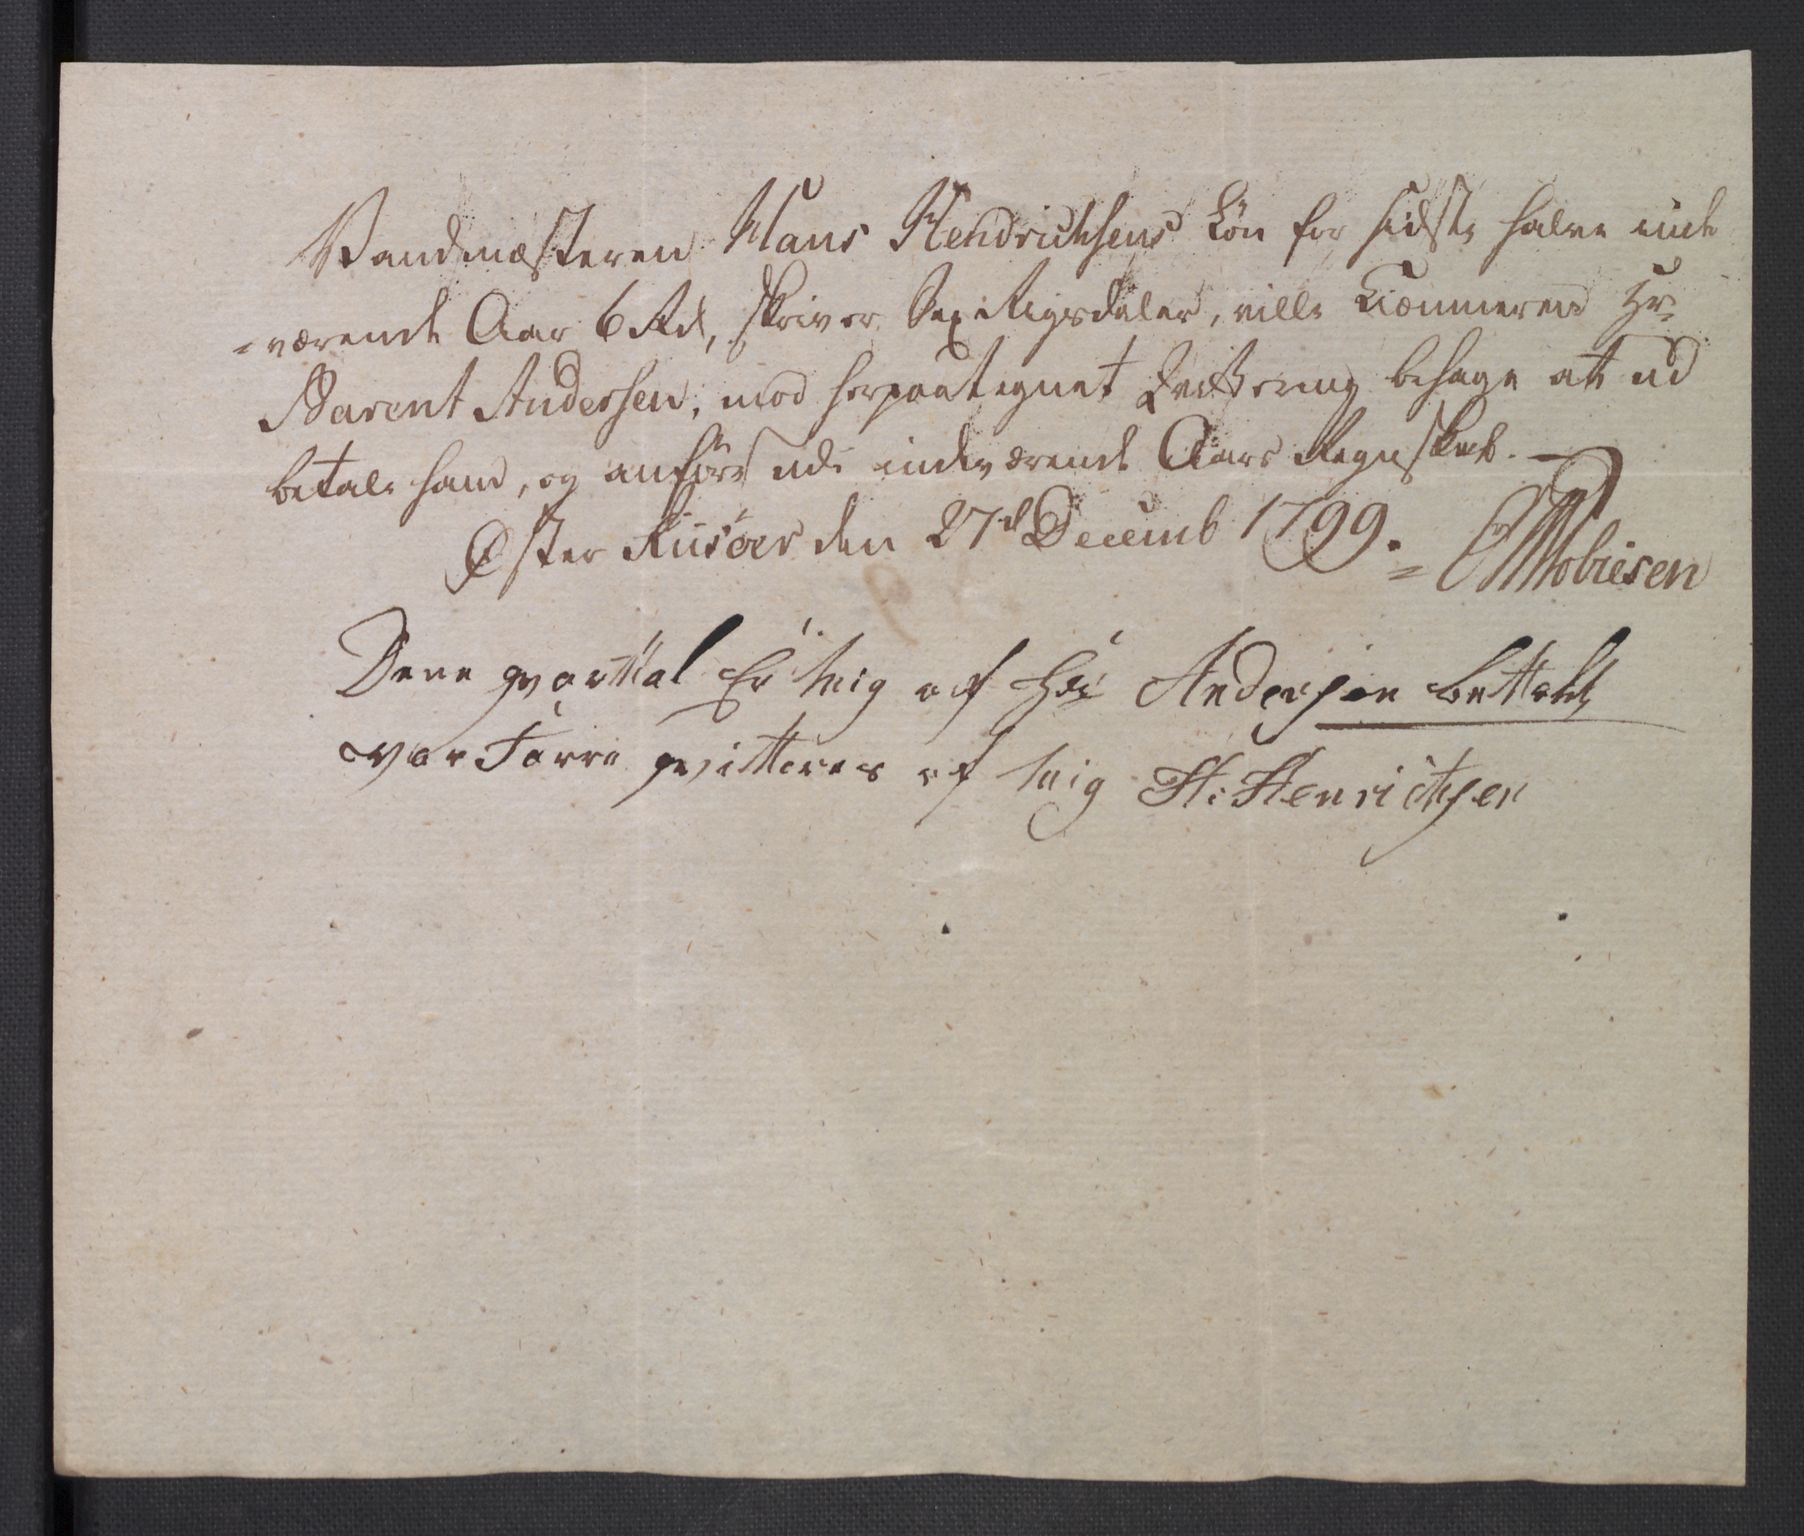 Vandmæsteren Hans Hendrichsens Løn for sidste halve inde
-værende Aar 6 Rd, skriver Sex Rigsdaler, ville Kiæmneren Hr
Barent Andersen, mod herpaategnet Qvittering behage at ud
betale ham, og anføres udi indeværende Aars Regnskab. -
Øster Riisøer den 27d Decemb 1799. =
Dene qvarttal Er Mig af Hr Andersen bettalt
vor Forre qvitteres af Mig H: Henrichsen